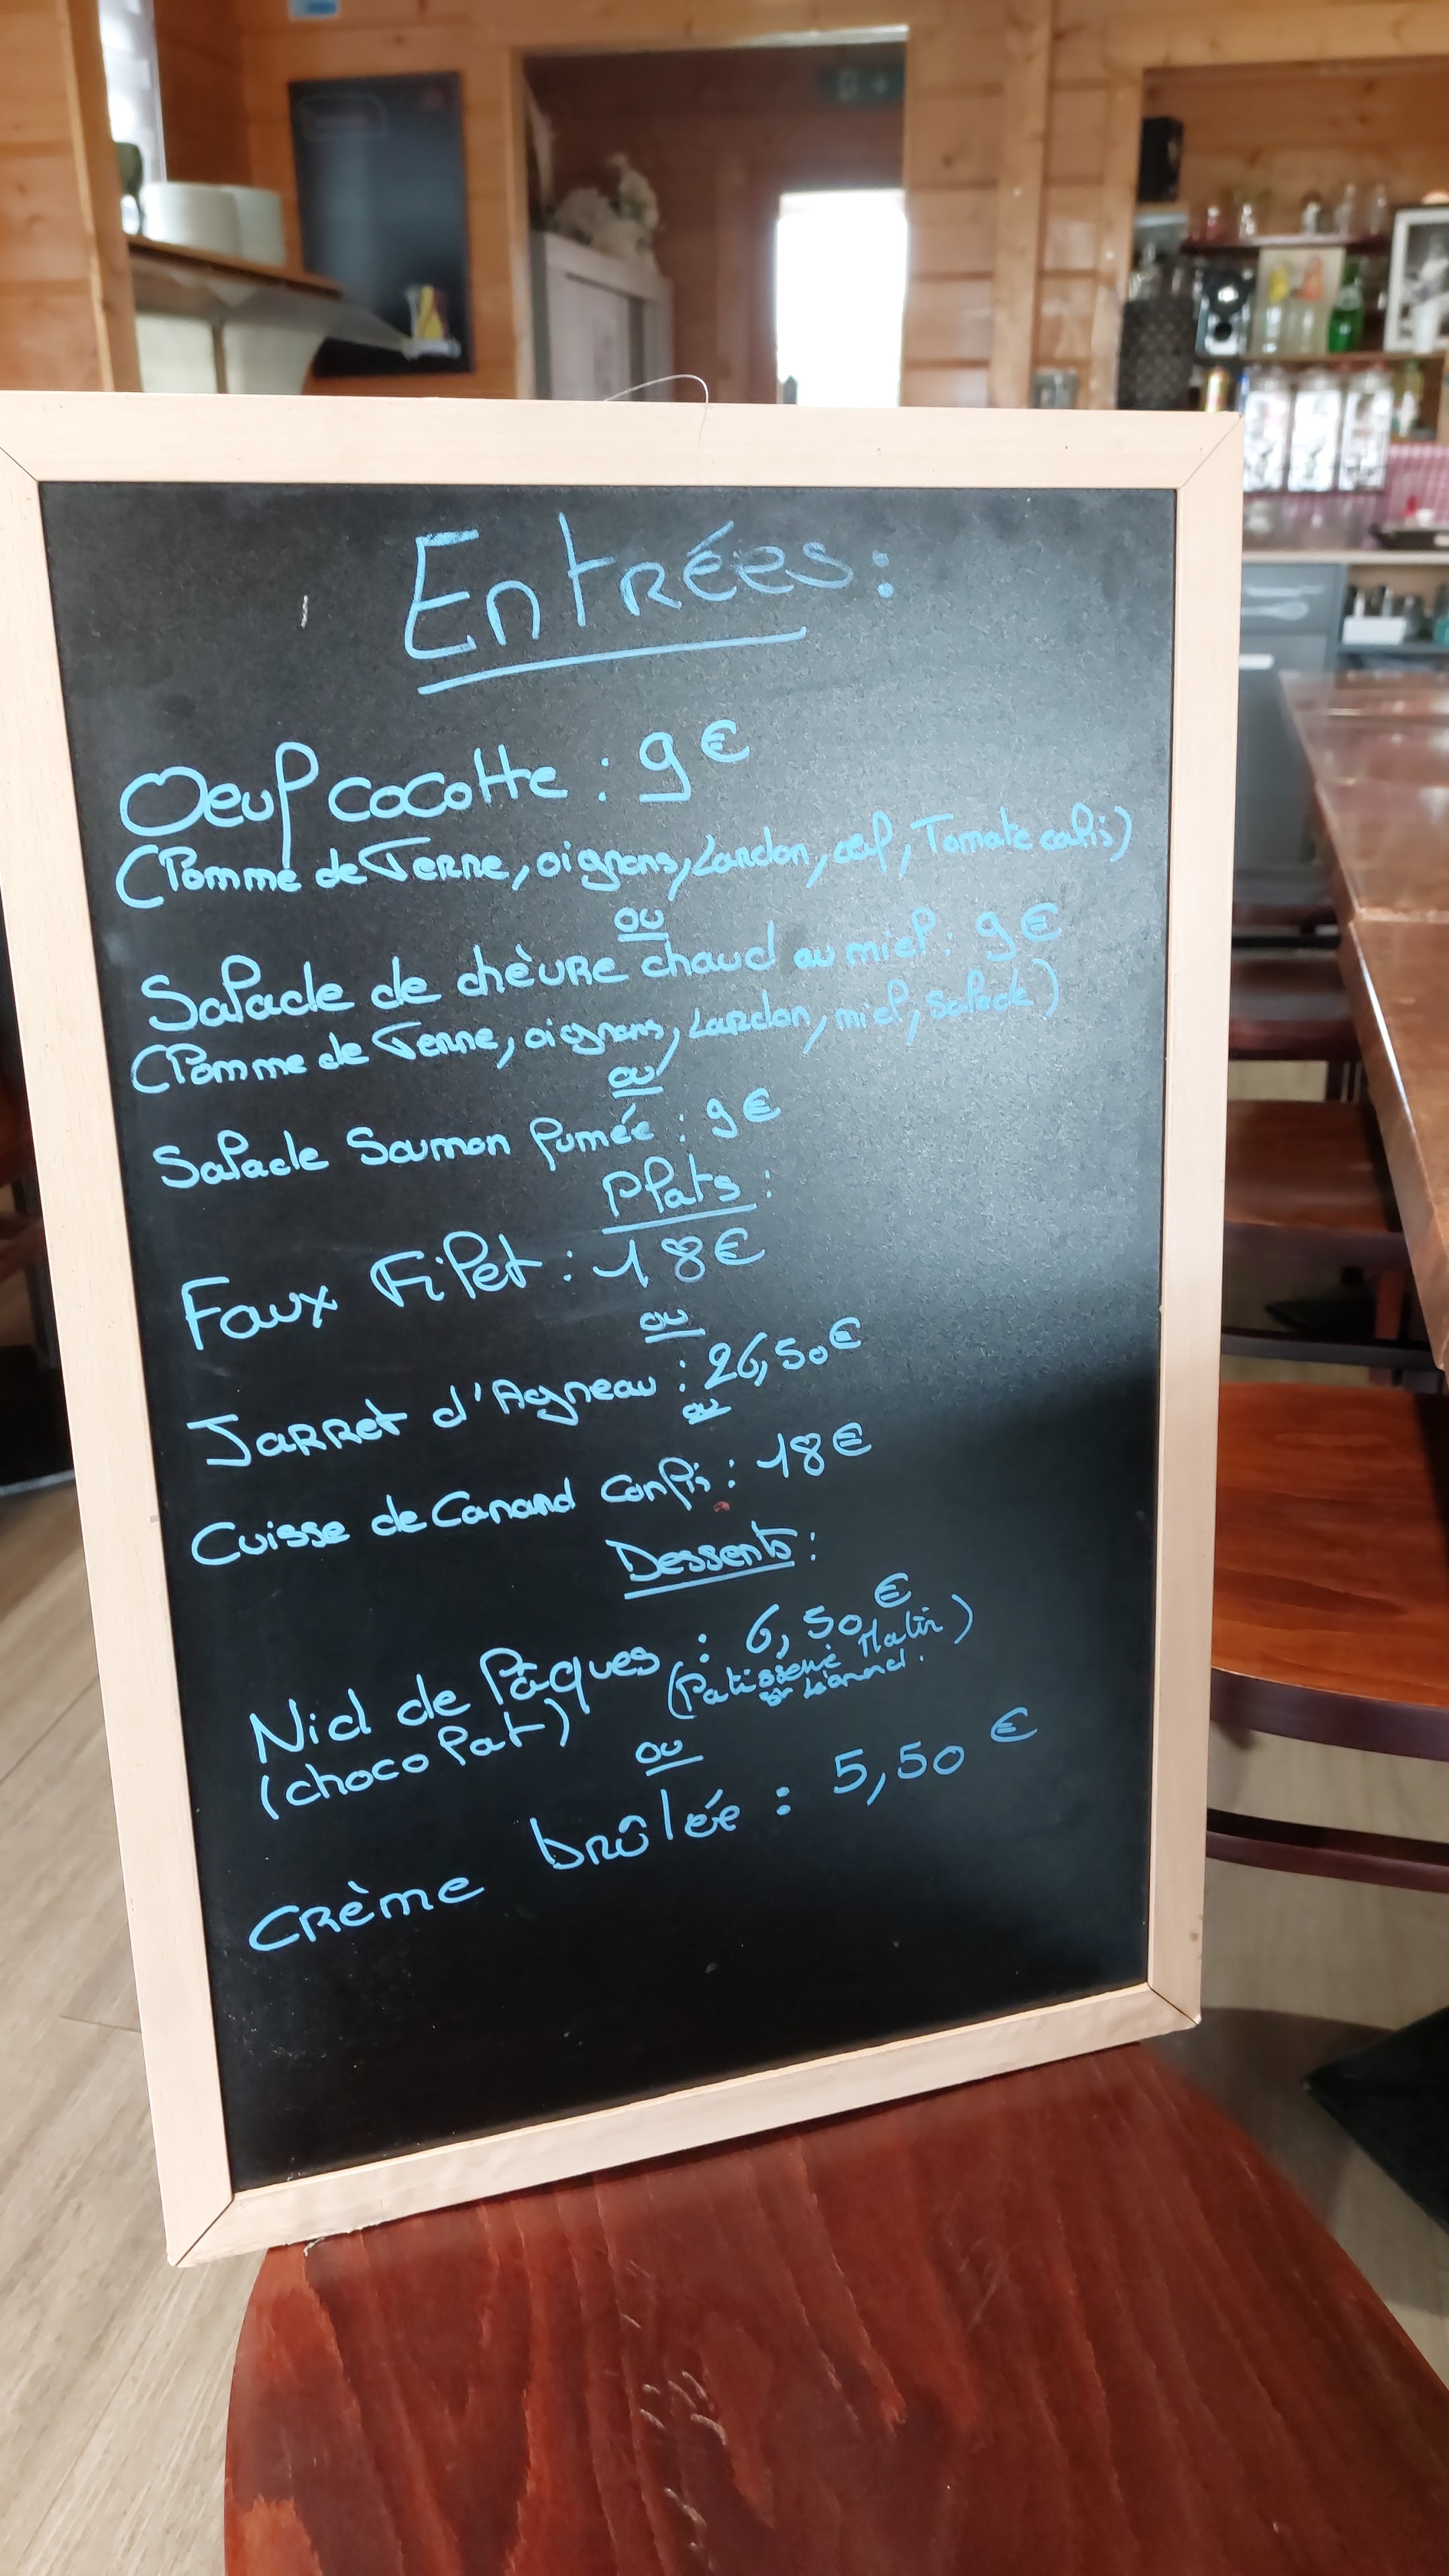 Entrées :
Oeuf cocotte : 9€
(Pomme de Terre, oignons, Lardon, œuf, Tomate cofis)
ou
Salade de chèvre chaud au miel : 9€
(Pomme de Terre, oignons, Lardon, miel, Salade)
ou
Salade Saumon fumée : 9€
Plats :
Faux Filet : 18€
ou
Jarret d'Agneau : 26,50€
ou
Cuisse de Canard Confis : 18€
Desserts :
Nid de Pâques : 6,50€
(chocolat) (Patisserie Matin
St Léonard.)
ou
Crème brûlée : 5,50 €